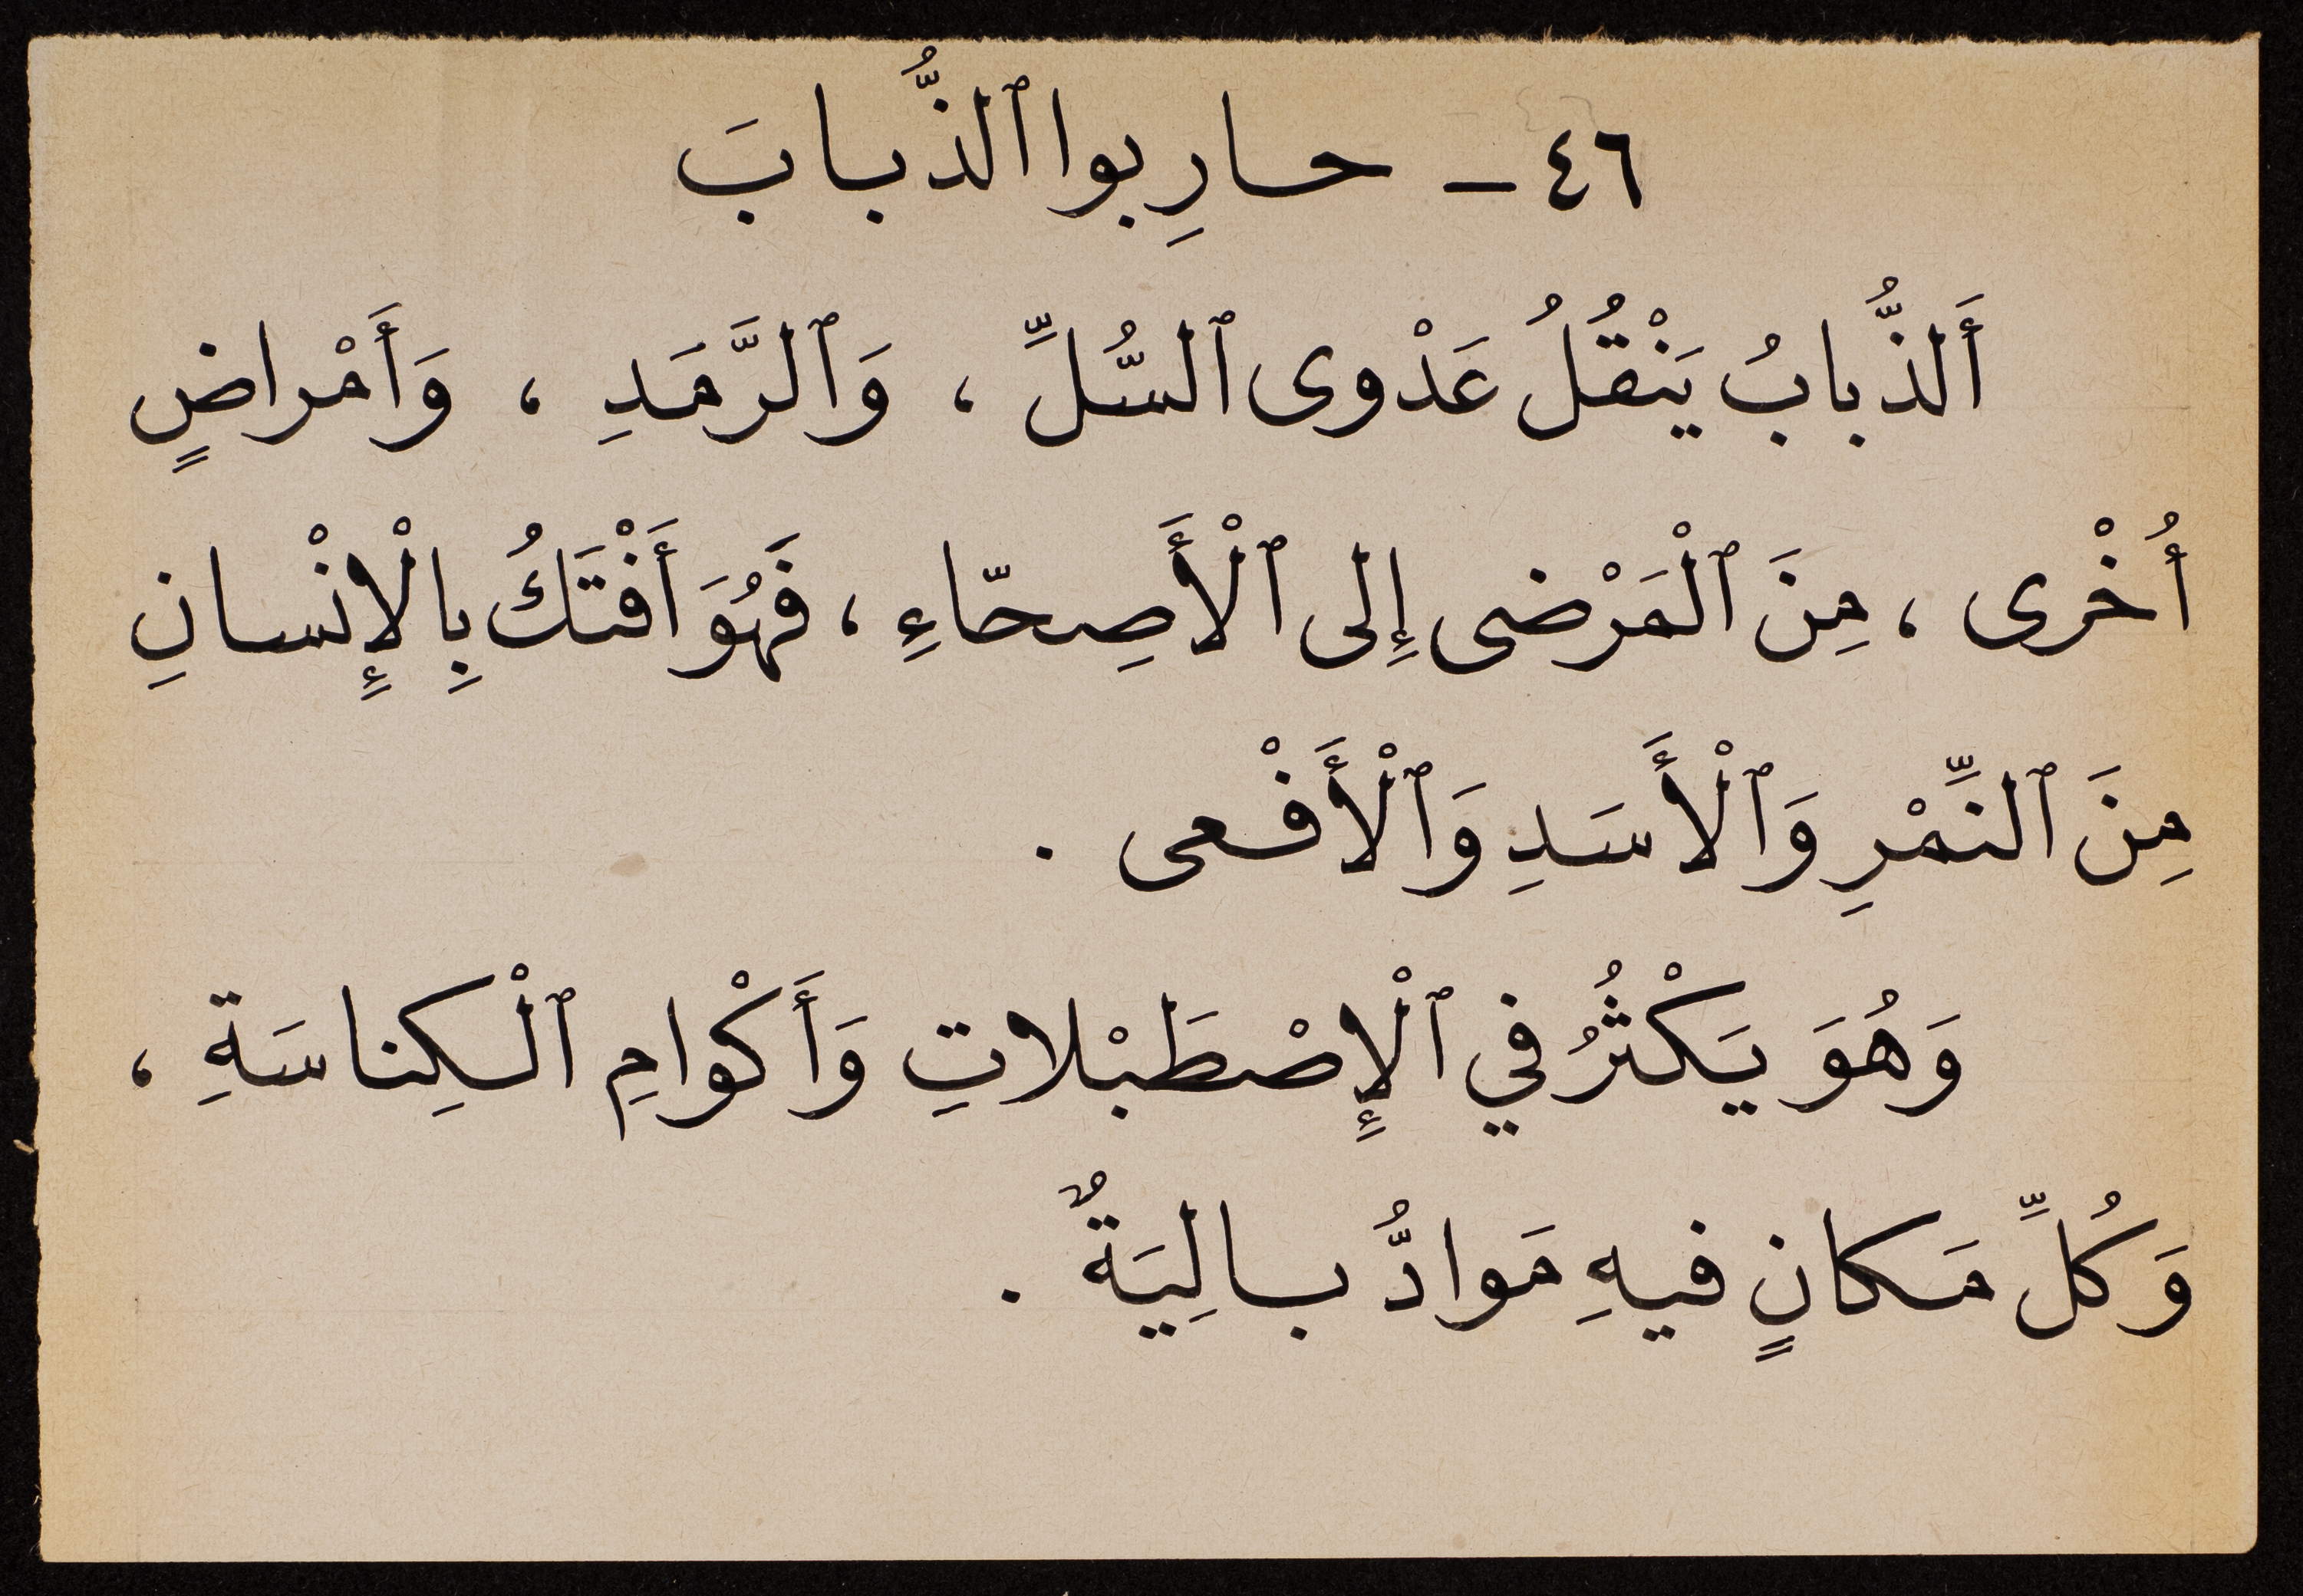 ٤٦ - حارِبوا ٱلذُّبابَ
أَلذُّبابُ يَنْقُلُ عَدْوى ٱلسُّلِّ ، وَٱلرَّمَدِ ، وَأَمْراضٍ
أُخْرى ، مِنَ ٱلْمَرْضى إِلى ٱلْأَصِحّاءِ ، فَهُوَ أَفْتَكُ بِالْإِنْسانِ
مِنَ ٱلنِّمْرِ وَٱلْأَسَدِ وَٱلْأَفْعى .
وَهُوَ يَكْثُرُ في ٱلْإِصْطَبْلاتِ وَأَكْوامِ ٱلْكِناسَةِ ،
وَكُلِّ مَكانٍ فيهِ مَوادُّ بالِيَةٌ .